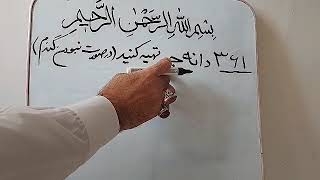 بسم الله الرحمن الرحیم
۳۶۱ دانه جو تهیه کنید (درصورت نبودن گندم)